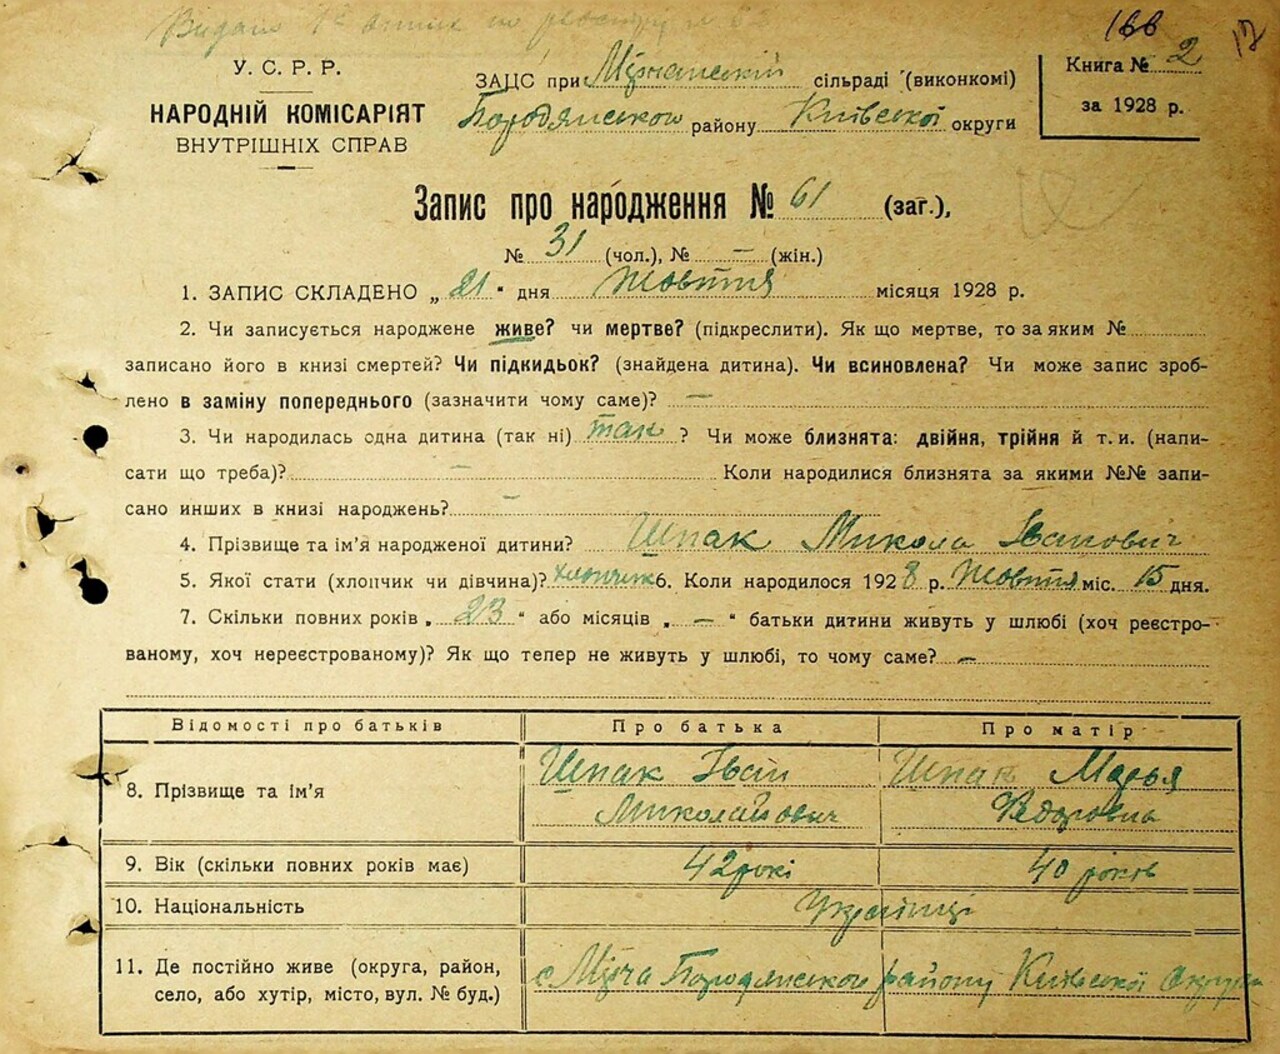 Видано
166 17
У. С. Р. Р.
НАРОДНІЙ КОМІСАРІЯТ
ВНУТРІШНІХ СПРАВ
ЗАЦС при сільраді (виконкомі)
Бородянського району Київської округи
Книга № 2
за 1928 р.
Запис про народження № 61 (заг.),
№ 31 (чол.), № — (жін.)
1. ЗАПИС СКЛАДЕНО „ 21 " дня Жовтня місяця 1928 р.
2. Чи записується народжене живе? чи мертве? (підкреслити). Як що мертве, то за яким №
записано його в книзі смертей? Чи підкидьок? (знайдена дитина). Чи всиновлена? Чи може запис зроб-
лено в заміну попереднього (зазначити чому саме)? —
3. Чи народилась одна дитина (так ні) так ? Чи може близнята: двійня, трійня й т. и. (напи-
сати що треба)? — Коли народилися близнята за якими №№ запи-
сано инших в книзі народжень? —
4. Прізвище та ім'я народженої дитини? Шпак Микола Іванович
5. Якої стати (хлопчик чи дівчина)? хлопчик 6. Коли народилося 1928 р. Жовтня міс. 15 дня.
7. Скільки повних років „ 23 " або місяців „ — " батьки дитини живуть у шлюбі (хоч реєстро-
ваному, хоч нереєстрованому)? Як що тепер не живуть у шлюбі, то чому саме? —
Відомості про батьків Про батька Про матір
8. Прізвище та ім'я Шпак Іван Миколайович Шпак Марья Федоровна
9. Вік (скільки повних років має) 42 рокі 40 років
10. Національність Українці
11. Де постійно живе (округа, район,
село, або хутір, місто, вул. № буд.) с Мірча Бородянського району Київської Округи